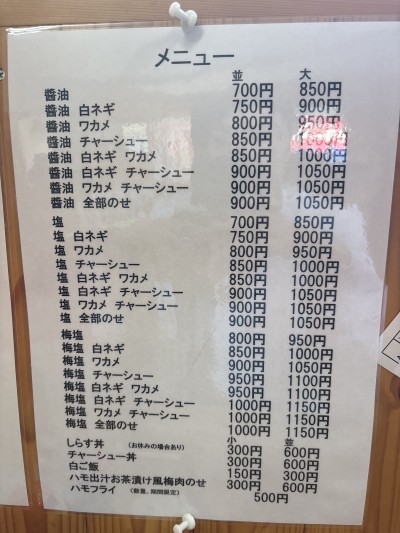 メニュー
並 大
醤油 700円 850円
醤油 白ネギ 750円 900円
醤油 ワカメ 800円 950円
醤油 チャーシュー 850円
醤油 白ネギ ワカメ 850円 1000円
醤油 白ネギ チャーシュー 900円 1050円
醤油 ワカメ チャーシュー 900円 1050円
醤油 全部のせ 900円 1050円
塩 700円 850円
塩 白ネギ 750円 900円
塩 ワカメ 800円 950円
塩 チャーシュー 850円 1000円
塩 白ネギ ワカメ 850円 1000円
塩 白ネギ チャーシュー 900円 1050円
塩 ワカメ チャーシュー 900円 1050円
塩 全部のせ 900円 1050円
梅塩 800円 950円
梅塩 白ネギ 850円 1000円
梅塩 ワカメ 900円 1050円
梅塩 チャーシュー 950円 1100円
梅塩 白ネギ ワカメ 950円 1100円
梅塩 白ネギ チャーシュー 1000円 1150円
梅塩 ワカメ チャーシュー 1000円 1150円
梅塩 全部のせ 1000円 1150円
小 並
しらす丼 (お休みの場合あり) 300円 600円
チャーシュー丼 300円 600円
白ご飯 150円 300円
ハモ出汁お茶漬け風梅肉のせ 300円 600円
ハモフライ (数量、期間限定) 500円